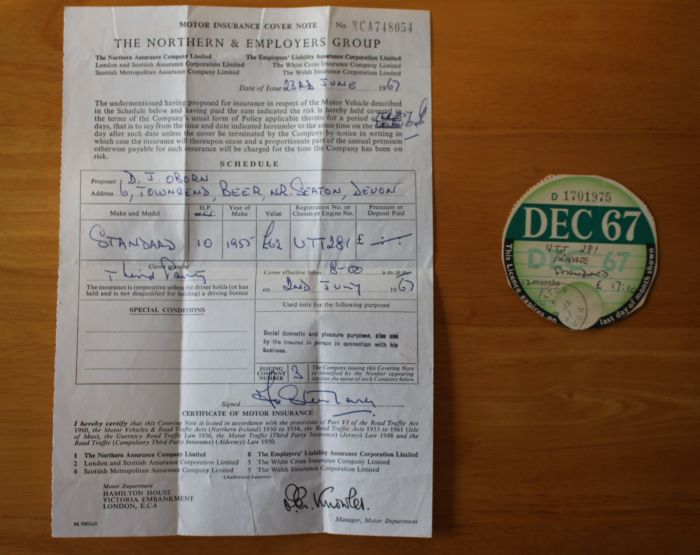 MOTOR INSURANCE COVER NOTE No. NCA748054
THE NORTHERN & EMPLOYERS GROUP
The Northern Assurance Company Limited The Employers' Liability Assurance Corporation Limited
London and Scottish Assurance Corporation Limited The White Cross Insurance Company Limited
Scottish Metropolitan Assurance Company Limited The Welsh Insurance Corporation Limited
Date of Issue 23RD JUNE 1967
The undermentioned having proposed for insurance in respect of the Motor Vehicle described
in the Schedule below and having paid the sum indicated the risk is hereby held covered in
the terms of the Company's usual form of Policy applicable thereto for a period of
days, that is to say from the time and date indicated hereunder to the same time on the
day after such date unless the cover be terminated by the Company by notice in writing in
which case the insurance will thereupon cease and a proportionate part of the annual premium
otherwise payable for such insurance will be charged for the time the Company has been on
risk.
SCHEDULE
Proposer D. J. OBORN
Address 6, TOWNSEND, BEER, NR. SEATON, DEVON
Make and Model H.P. Year of Make Value Registration No. or Chassis or Engine No. Premium or Deposit Paid
STANDARD 10 1955 £62 UTT281 £
Cover Third Party
Cover effective from 8-00 a.m./p.m.
The insurance is inoperative unless the driver holds (or
has held and is not disqualified for holding) a driving licence
on 2ND JULY 1967
SPECIAL CONDITIONS
Used only for the following purposes
Social domestic and pleasure purposes, also use
by the insured in person in connection with his
business.
ISSUING COMPANY NUMBER 3
The Company issuing this Covering Note
is identified by the Number appearing
against the name of such Company below
Signed
CERTIFICATE OF MOTOR INSURANCE
I hereby certify that this Covering Note is issued in accordance with the provisions of Part VI of the Road Traffic Act
1960, the Motor Vehicles & Road Traffic Acts (Northern Ireland) 1930 to 1934, the Road Traffic Acts 1933 to 1961 (Isle
of Man), the Guernsey Road Traffic Law 1936, the Motor Traffic (Third Party Insurance) (Jersey) Law 1948 and the
Road Traffic (Compulsory Third Party Insurance) (Alderney) Law 1950.
1 The Northern Assurance Company Limited 8 The Employers' Liability Assurance Corporation Limited
2 London and Scottish Assurance Corporation Limited 3 The White Cross Insurance Company Limited
4 Scottish Metropolitan Assurance Company Limited 5 The Welsh Insurance Corporation Limited
(Authorised Insurers)
Motor Department
HAMILTON HOUSE
VICTORIA EMBANKMENT
LONDON, E.C.4
Knowles.
Manager, Motor Department
D 1701975
DEC 67
UTT 281
PRIVATE
STANDARD
12 months £ 17:10
This Licence expires on last day of month shown